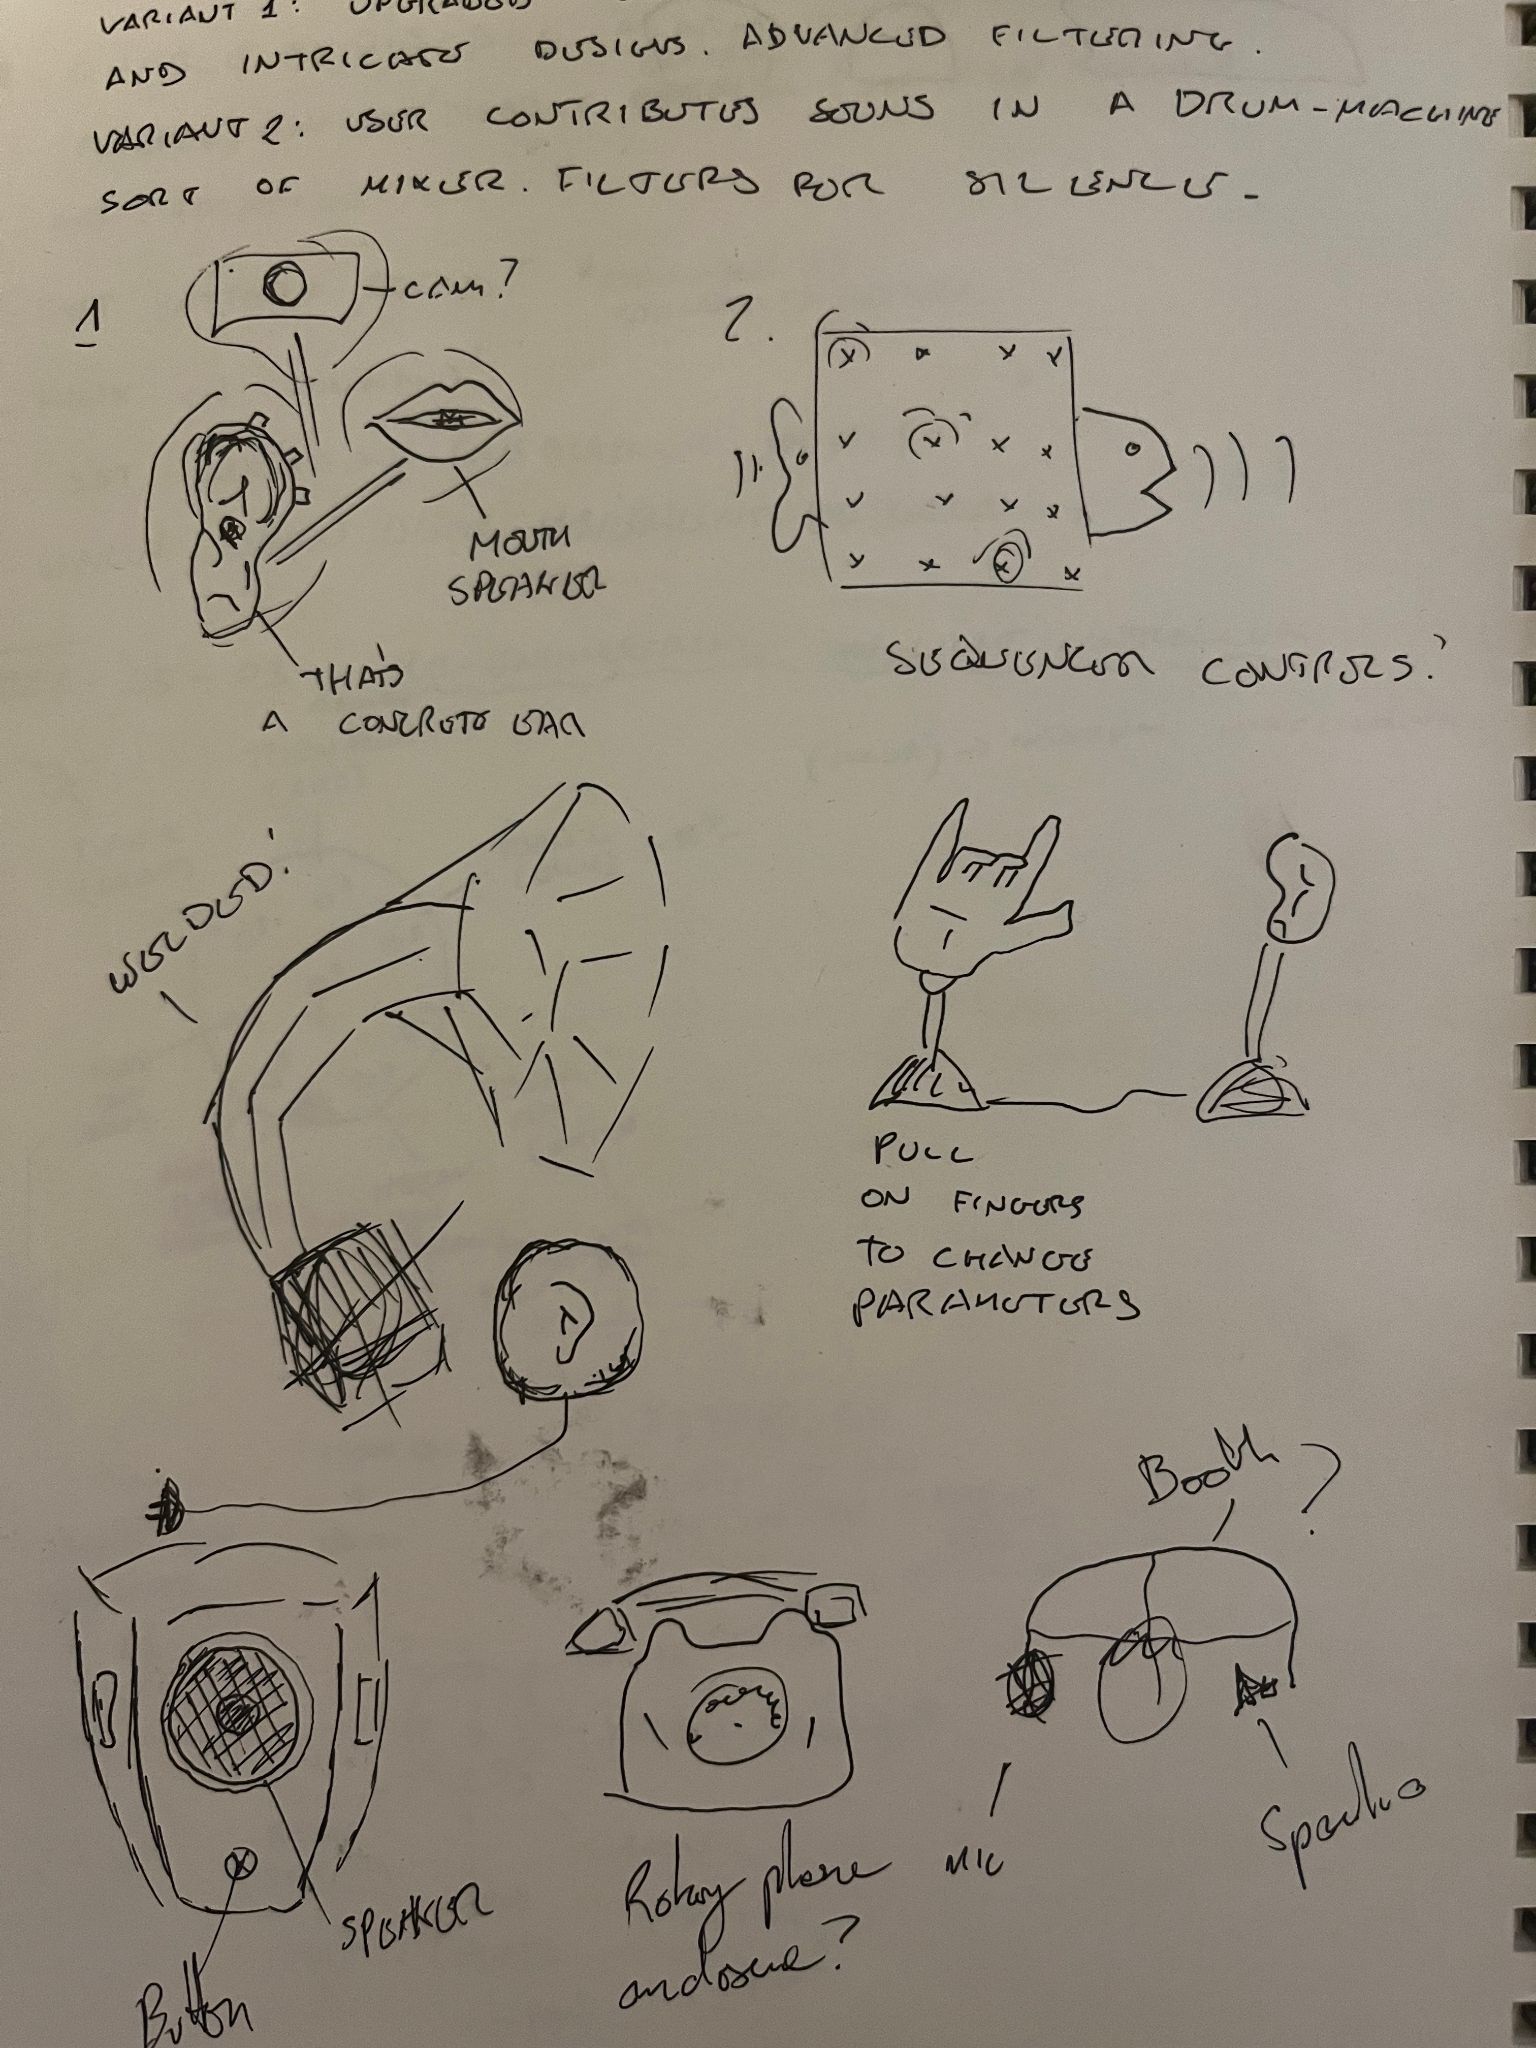 VARIANT 1: UPGRADED
AND INTRICATE DESIGNS. ADVANCED FILTERING.
VARIANT 2: USER CONTRIBUTES SOUNS IN A DRUM-MACHINE
SORT OF MIXER. FILTERS FOR SILENCE.
1
CAM?
MOUTH
SPEAKER
THAT'S
A CONCRETE EAR
2.
SEQUENCER CONTROLS?
WELDED!
PULL
ON FINGERS
TO CHANGE
PARAMETERS
SPEAKER
Button
Rotary phone
enclosure?
Booth?
MIC